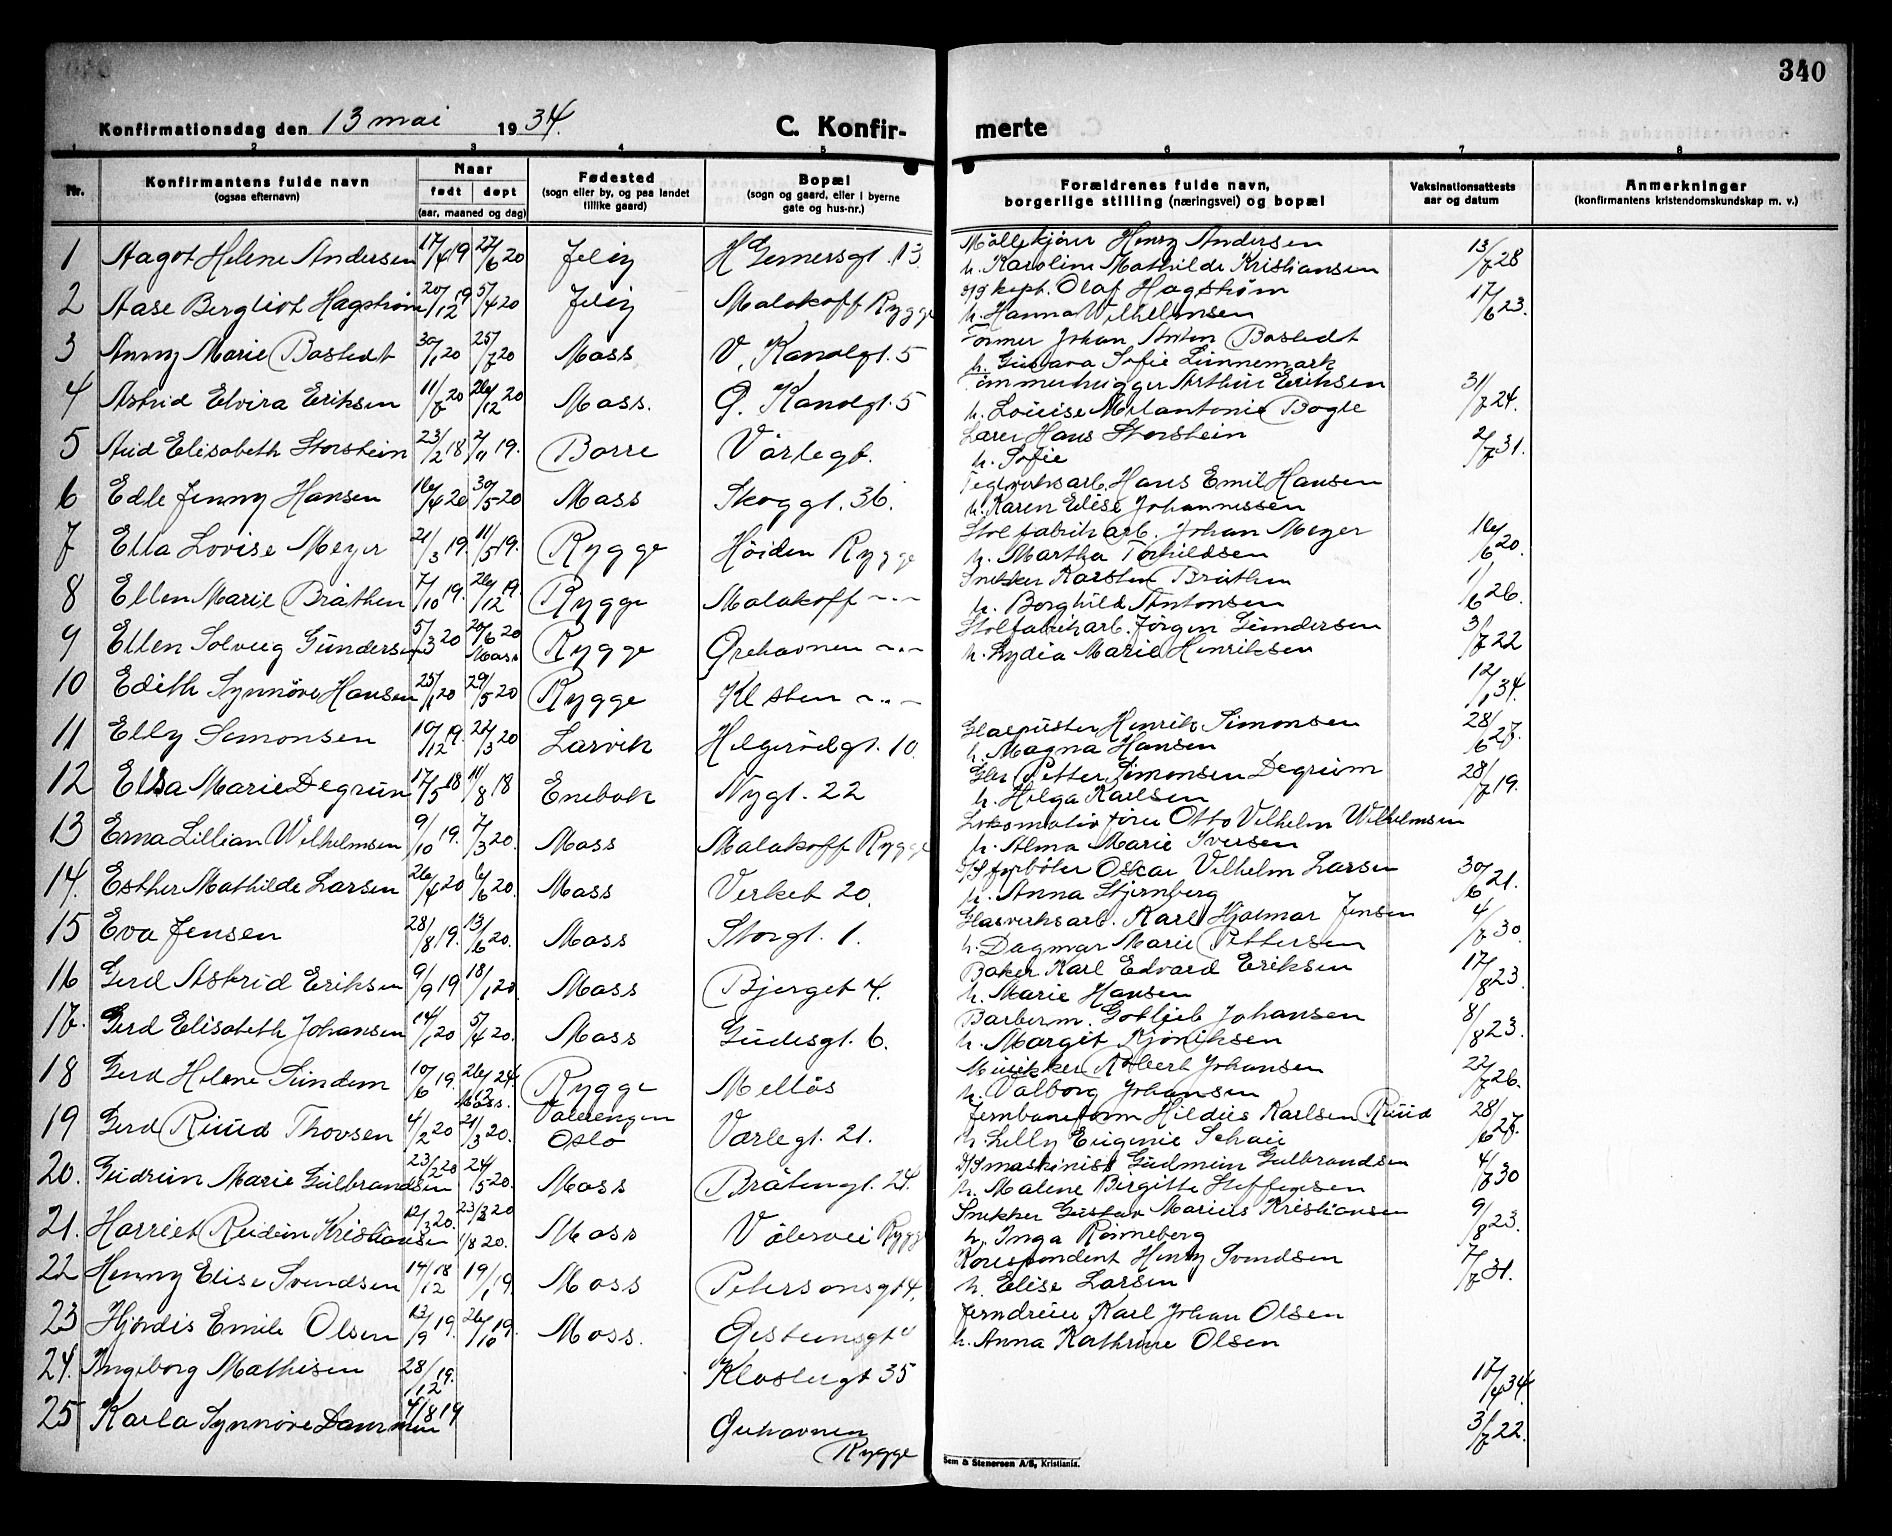 340
Konfirmationsdag den 13 mai 1934.
C. Konfir- merte
1 2 3 4 5 6 7 8
Nr. Konfirmantens fulde navn (ogsaa efternavn) Naar født døpt (aar, maaned og dag) Fødested (sogn eller by, og paa landet tillike gaard) Bopæl (sogn og gaard, eller i byerne gate og hus-nr.) Forældrenes fulde navn, borgerlige stilling (næringsvei) og bopæl Vaksinationsattests aar og datum Anmerkninger (konfirmantens kristendomskundskap m. v.)
1 Aagot Helene Andersen 17/4 19 27/6 20 Jeløy H Gernersgt. 13. Møllekjører Henry Andersen 13/7 28
h. Karoline Mathilde Kristiansen
2 Aase Bergliot Hagstrøm 20/12 19 5/4 20 Jeløy Malakoff Rygge Olaf Hagstrøm 17/6 23.
h. Hanna Wilhelmsen
3 Anny Marie Bastedt 30/1 20 25/7 20 Moss V. Kanalgt. 5 Former Johan Anton Bastedt
h. Gustava Sofie Linnemark
4 Astrid Elvira Eriksen 11/7 20 26/12 20 Moss. Ø. Kanalgt. 5 Tømmerhugger Arthur Eriksen 31/7 24.
h. Louise Melantonie Bogle
5 Aud Elisabeth Storstein 23/2 18 2/11 19. Borre Vårlegt. Lærer Hans Storstein 2/7 31.
h. Sofie
6 Edle Jenny Hansen 16/4 20 30/5 20 Moss Skoggt. 36. Teglverksarb. Hans Emil Hansen
h. Karen Elise Johannessen
7 Ella Lovise Meyer 21/3 19. 11/5 19. Rygge Høiden Rygge Stolfabrikarb. Johan Meyer 16/6 20.
h. Martha Torhildsen
8 Ellen Marie Bråthen 7/10 19. 26/12 19. Rygge Malakoff ~..~ Snekker Karsten Bråthen 1/6 26.
h. Borghild Antonsen
9 Ellen Solveig Gundersen 5/3 20 20/6 20 Moss Rygge Grehavnen ~..~ Stolfabrikarb. Jørgen Gundersen 3/7 22
h. Lydia Marie Henriksen
10 Edith Synnøve Hansen 25/1 20 29/5 20 Rygge Kl sten ~..~ 12/1 34.
11 Elly Simonsen 10/12 19. 22/3 20 Larvik Helgerødgt. 10. Glaspuster Henrik Simonsen 28/6 27.
h. Magna Hansen
12 Elsa Marie Degrum 17/5 18 11/8 18 Enebak Nygt. 22 Petter Simonsen Degrum 28/7 19.
h. Helga Karlsen
13 Erna Lillian Wilhelmsen 9/10 19. 7/3 20. Moss Malakoff Rygge Lokomotivfører Otto Vilhelm Wilhelmsen
h. Alma Marie Iversen
14. Esther Mathilde Larsen 26/4 20 6/6 20. Moss Verket 20. D/S fyrbøter Oskar Vilhelm Larsen 30/6 21.
h. Anna Stjernberg
15 Eva Jensen 28/8 19. 13/6 20. Moss Storgt. 1. Glasverksarb. Karl Hjalmar Jensen 4/7 30.
h. Dagmar Marie Pettersen
16 Gerd Astrid Eriksen 9/9 19 18/1 20. Moss Bjerget 4. Baker Karl Edvard Eriksen 17/8 23.
h. Marie Hansen
17. Gerd Elisabeth Johansen 14/1 20 5/4 20. Moss Gudesgt. 6. Barberm. Gotlieb Johansen 8/8 23.
h. Margit Kjøniksen
18 Gerd Helene Sundem 10/6 19. 26/12 24. Moss. Rygge Melløs Albert Johansen 22/7 26.
h. Valborg Johansen
19 Gerd Ruud Thovsen 4/2 20 21/3 20. Vålerengen Oslo Varlegt. 21. Hildus Karlsen Ruud 28/6 27.
h. Lelly Eugenie Schaie
20. Gudrun Marie Gulbrandsen 23/2 20 24/5 20. Moss Bråtengt. 24. D/S maskinist Gudmun Gulbrandsen 4/7 30
h. Malene Birgitte Steffensen
21. Harriet Reidun Kristiansen 12/3 20. 23/3 20 1/8 20. Moss Vålervei Rygge Snekker Gustav Marius Kristiansen 9/8 23.
h. Inga Rønneberg
22 Henny Elise Svendsen 14/12 18 19/1 19. Moss Petersonsgt 4. Korrespondent Henry Svendsen 7/7 31.
h. Elise Larsen
23 Hjørdis Emilie Olsen 13/9 19. 26/10 19. Moss. Jerndreier Karl Johan Olsen
h. Anna Kathrine Olsen
24. Ingeborg Mathisen 28/12 19. Klostergt 35 17/4 34.
25 Karla Synnøve Dammen 4/8 19 Grehavnen Rygge 3/7 22.
Sem & Stenersen A/S, Kristiania.